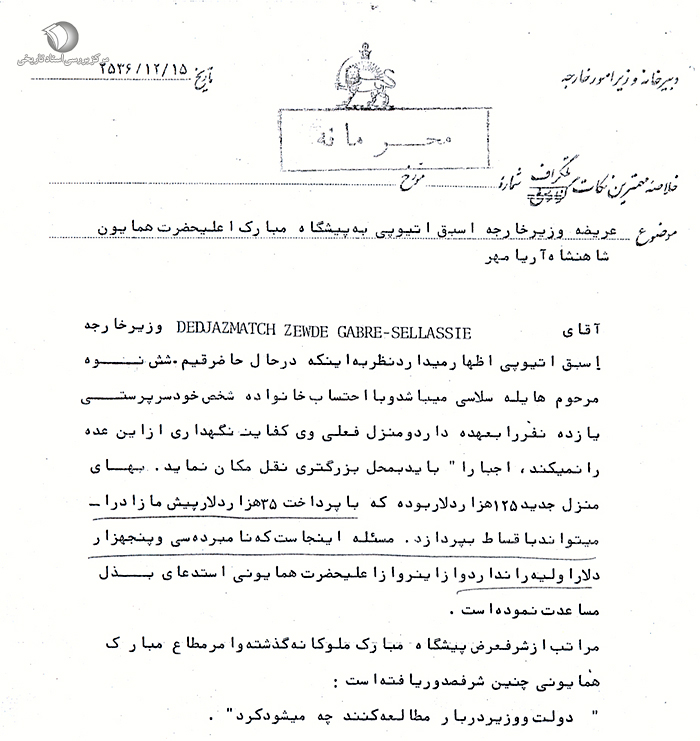 مرکز بررسی اسناد تاریخی
دبیرخانه وزیر امور خارجه
تاریخ ۲۵۳۶/۱۲/۱۵
محرمانه
خلاصه مهمترین نکات تلگراف شماره مورخ
موضوع عریضه وزیر خارجه اسبق اتیوپی به پیشگاه مبارک اعلیحضرت همایون
شاهنشاه آریامهر
آقای DEDJAZMATCH ZEWDE GABRE-SELLASSIE وزیر خارجه
اسبق اتیوپی اظهار میدارد نظر به اینکه در حال حاضر قیم شش نوه
مرحوم هایله سلاسی میباشد و با احتساب خانواده شخص خود سرپرستی
یازده نفر را بعهده دارد و منزل فعلی وی کفایت نگهداری از این عده
را نمیکند، اجبارا" باید به محل بزرگتری نقل مکان نماید. بهای
منزل جدید ۱۲۵ هزار دلار بوده که با پرداخت ۳۵ هزار دلار پیش مازاد را
میتواند با قساط بپردازد. مسئله اینجاست که نامبرده سی و پنجهزار
دلار اولیه را ندارد و از اینرو از اعلیحضرت همایونی استدعای بذل
مساعدت نموده است.
مراتب از شرفعرض پیشگاه مبارک ملوکانه گذشته و امر مطاع مبارک
همایونی چنین شرفصدور یافته است:
" دولت و وزیر دربار مطالعه کنند چه میشود کرد".